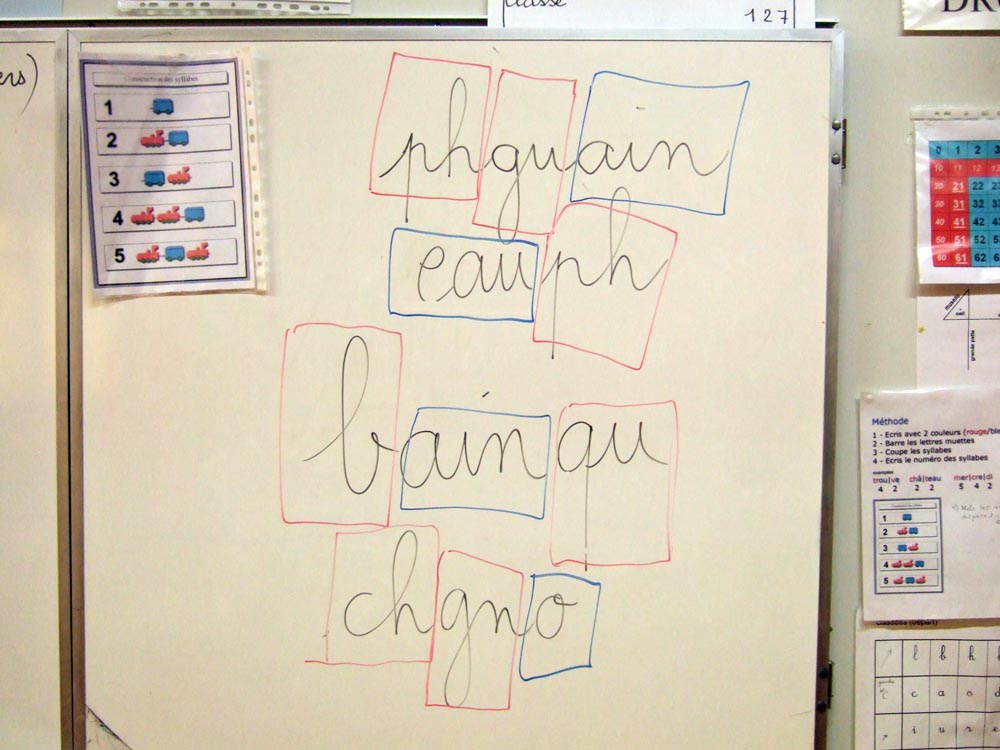 classe
127
DR
ers)
Construction des syllabes
1
2
3
4
5
phguain
eauph
bainqu
chgno
0 1 2 3
10 11 12 13
20 21 22 23
30 31 32
40 41 42 43
50 51 52 53
60 61 62 6
grande patte
Méthode
1 - Ecris avec 2 couleurs (rouge/ble
2 - Barre les lettres muettes
3 - Coupe les syllabes
4 - Ecris le numéro des syllabes
exemples
trou|ve châ|teau mer|cre|di
4 2 2 2 5 4 2
1
2
3
4
5
(départ)
l b h
c a o d
i u r e